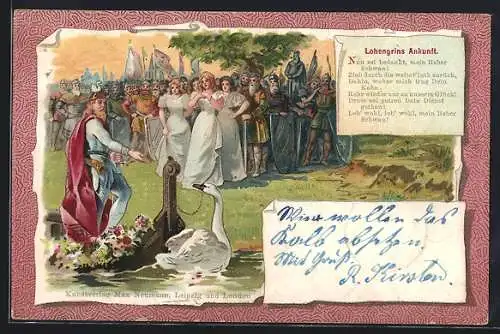 Lohengrins Ankunft.
Nun sei bedankt, mein lieber
Schwan!
Zieh durch die weite Flut zurück,
Dahin, woher mich trug dein
Kahn,
Kehr wieder nur zu unserm Glück!
Drum sei getreu dein Dienst
gethan!
Leb' wohl, leb' wohl, mein lieber
Schwan!
Wir wollen das
Kalb absetzen
Mit Gruß.
R. Kirsten.
Kunstverlag Max Neumann, Leipzig und London